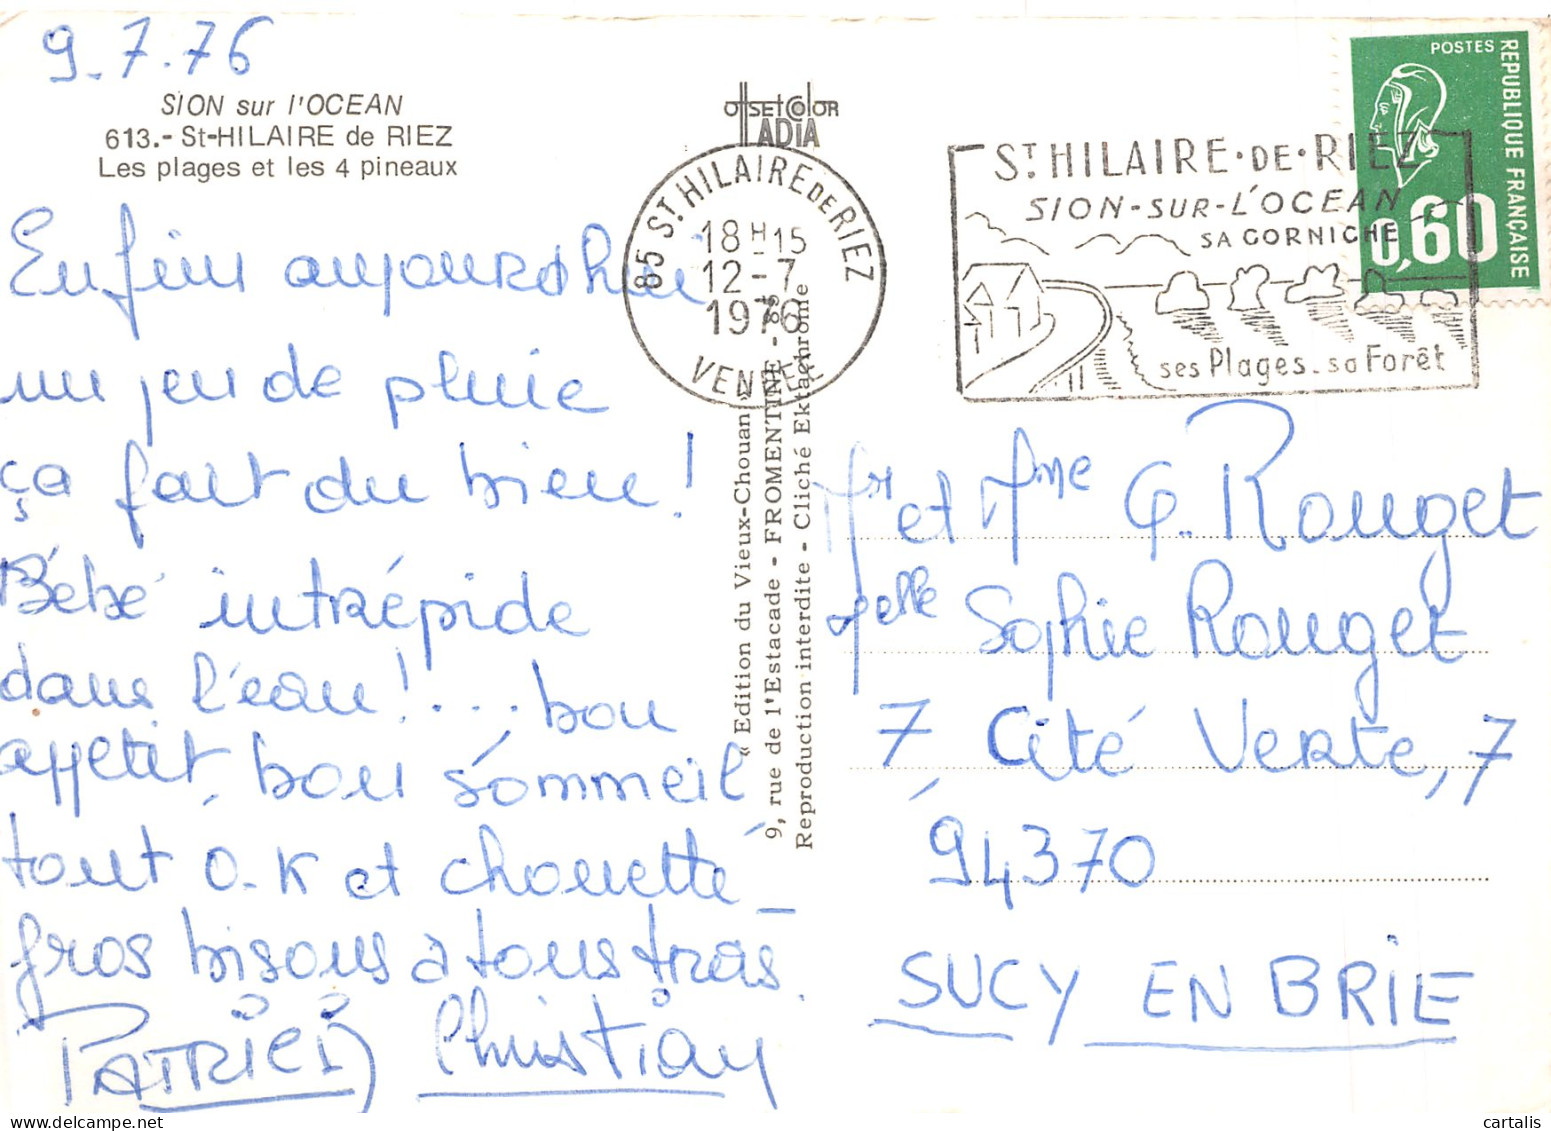 9.7.76
SION sur l'OCEAN
613.- St-HILAIRE de RIEZ
Les plages et les 4 pineaux
Enfin aujourd'hui
un peu de pluie
ça fait du bien !
Bébé intrépide
dans l'eau !.... bon
appetit, bon sommeil
tout O.K et chouette
gros bisous à tous trois.
PATRICE, Christian
offset Color
ADIA
85 ST HILAIRE DE RIEZ
18 H 15
12 - 7
1976
VENDEE
« Edition du Vieux-Chouan »
9, rue de l'Estacade - FROMENTINE - 85
Reproduction interdite - Cliché Ektachrome
ST HILAIRE·DE·RIEZ
SION-SUR-L'OCEAN
SA CORNICHE
ses Plages - sa Forêt
POSTES
REPUBLIQUE FRANÇAISE
0,60
Mr et Mme G. Rouget
Melle Sophie Rouget
7, Cité Verte, 7
94370
SUCY EN BRIE
cartalis